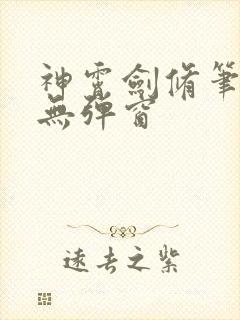 神霄劍脩筆
無彈窗
遠去之紫